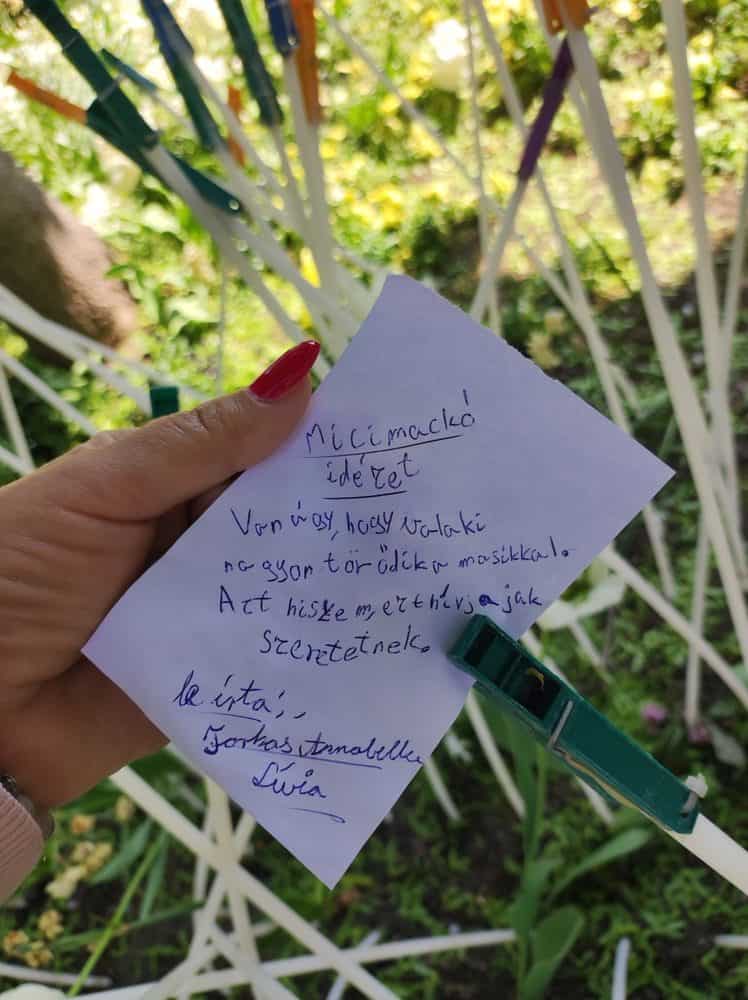 Micimackó
idézet
Van úgy, hogy valaki
nagyon törődik a masikkal.
Azt hiszem, ezt hívjajak
szeretetnek.
le írta:
Farkas Annabella
Lívia